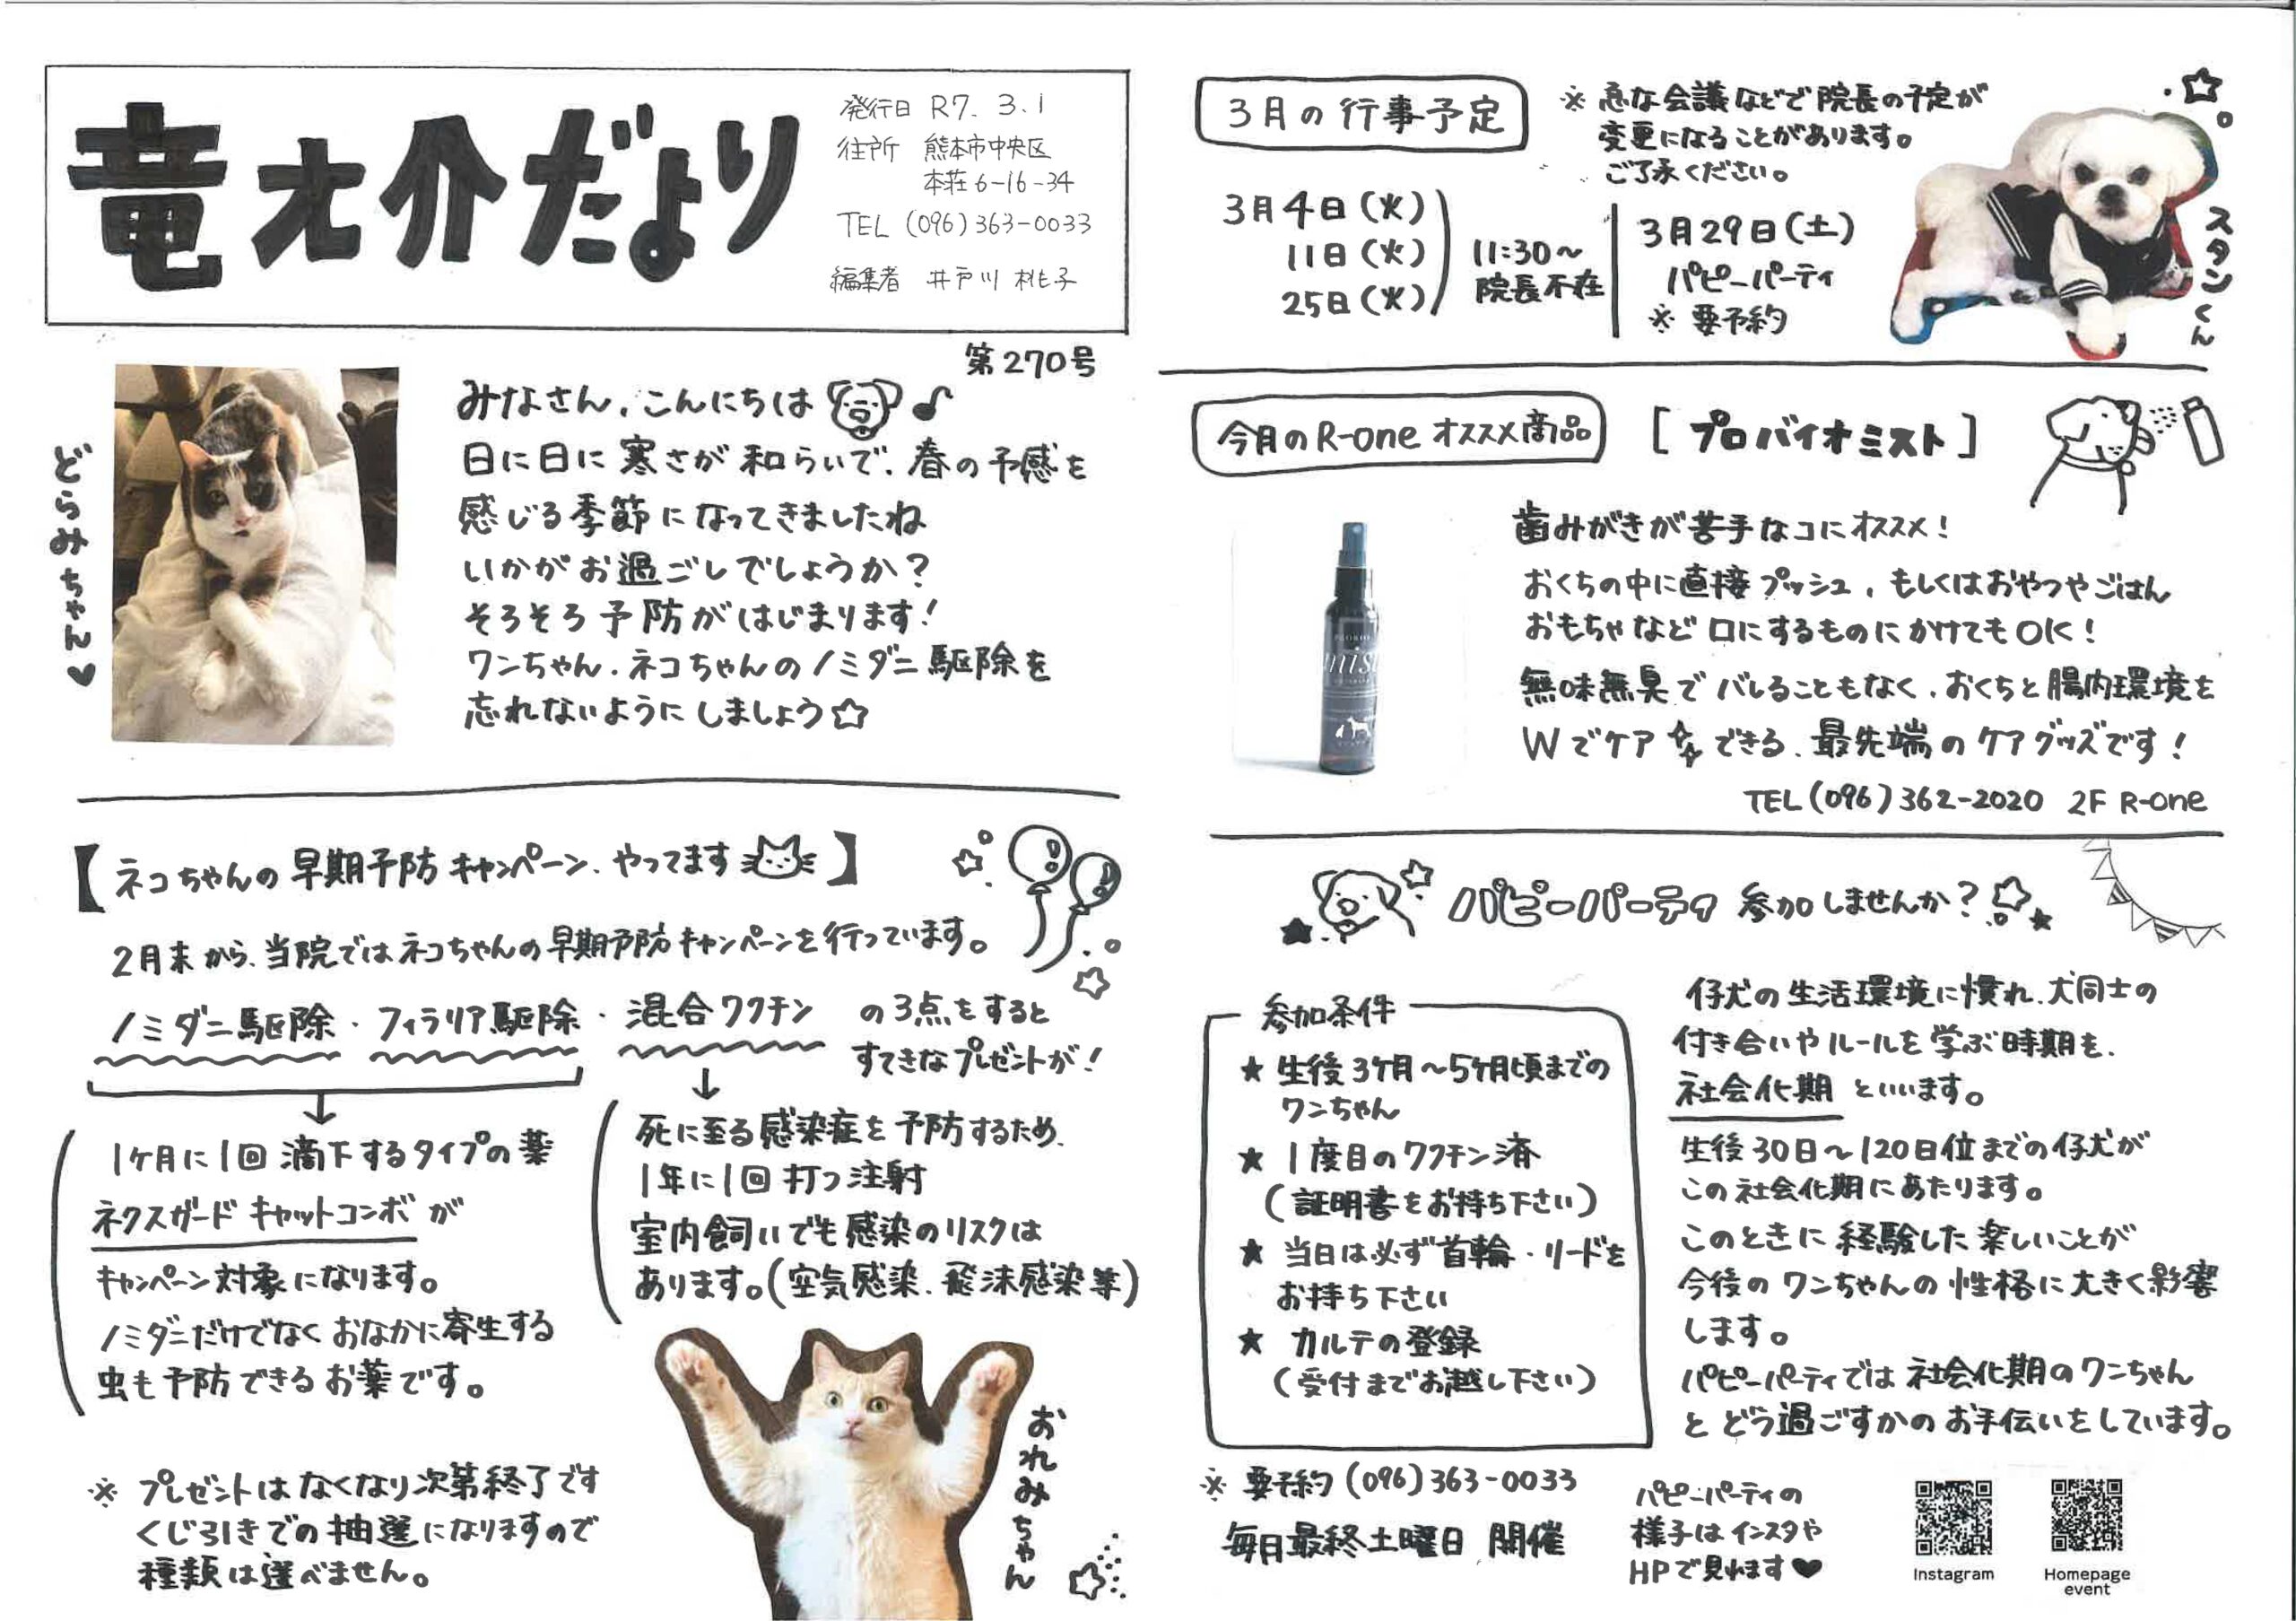 竜之介だより
発行日 R7. 3. 1
住所 熊本市中央区
本荘6-16-34
TEL (096)363-0033
編集者 井戸川 桃子
第270号
どらみちゃん♥
みなさん、こんにちは♪
日に日に寒さが和らいで、春の予感を
感じる季節になってきましたね
いかがお過ごしでしょうか?
そろそろ予防がはじまります!
ワンちゃん、ネコちゃんのノミダニ駆除を
忘れないようにしましょう☆
【ネコちゃんの早期予防キャンペーン、やってます】
2月末から、当院ではネコちゃんの早期予防キャンペーンを行っています。
ノミダニ駆除・フィラリア駆除・混合ワクチン の3点をすると
すてきなプレゼントが!
1ヶ月に1回滴下するタイプの薬
ネクスガード キャットコンボが
キャンペーン対象になります。
ノミダニだけでなくおなかに寄生する
虫も予防できるお薬です。
死に至る感染症を予防するため、
1年に1回打つ注射
室内飼いでも感染のリスクは
あります。(空気感染、飛沫感染等)
※ プレゼントはなくなり次第終了です
くじ引きでの抽選になりますので
種類は選べません。
おれみちゃん
3月の行事予定
※ 急な会議などで院長の予定が
変更になることがあります。
ご了承ください。
3月4日(火)
11日(火)
25日(火)
11:30～
院長不在
3月29日(土)
パピーパーティ
※ 要予約
スタンくん
今月のR-one オススメ商品
[プロバイオミスト]
歯みがきが苦手なコにオススメ!
おくちの中に直接プッシュ、もしくはおやつやごはん
おもちゃなど口にするものにかけてもOK!
無味無臭でバレることもなく、おくちと腸内環境を
Wでケアできる、最先端のケアグッズです!
TEL(096)362-2020 2F R-one
mist
パピーパーティ 参加しませんか?
参加条件
★ 生後3ヶ月～5ヶ月頃までの
ワンちゃん
★ 1度目のワクチン済
(証明書をお持ち下さい)
★ 当日は必ず首輪・リードを
お持ち下さい
★ カルテの登録
(受付までお越し下さい)
※ 要予約 (096)363-0033
毎月最終土曜日 開催
仔犬の生活環境に慣れ、犬同士の
付き合いやルールを学ぶ時期を、
社会化期 といいます。
生後30日～120日位までの仔犬が
この社会化期にあたります。
このときに経験した楽しいことが
今後のワンちゃんの性格に大きく影響
します。
パピーパーティでは社会化期のワンちゃん
とどう過ごすかのお手伝いをしています。
パピーパーティの
様子はインスタや
HPで見れます♥
Instagram
Homepage
event